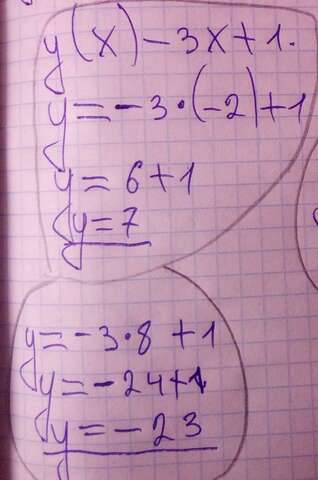 y(x) - 3x + 1.
y = -3 · (-2) + 1
y = 6 + 1
y = 7
y = -3 · 8 + 1
y = -24 + 1
y = -23